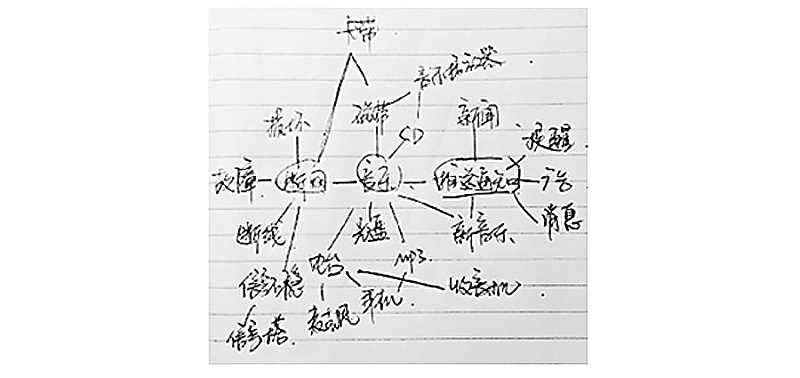 卡带
音乐播放器
磁带
新闻
损坏
CD
提醒
故障
断网
音乐
推送通知
广告
消息
断线
光盘
新音乐
电台
MP3
信号不稳
手机
收音机
麦克风
信号塔